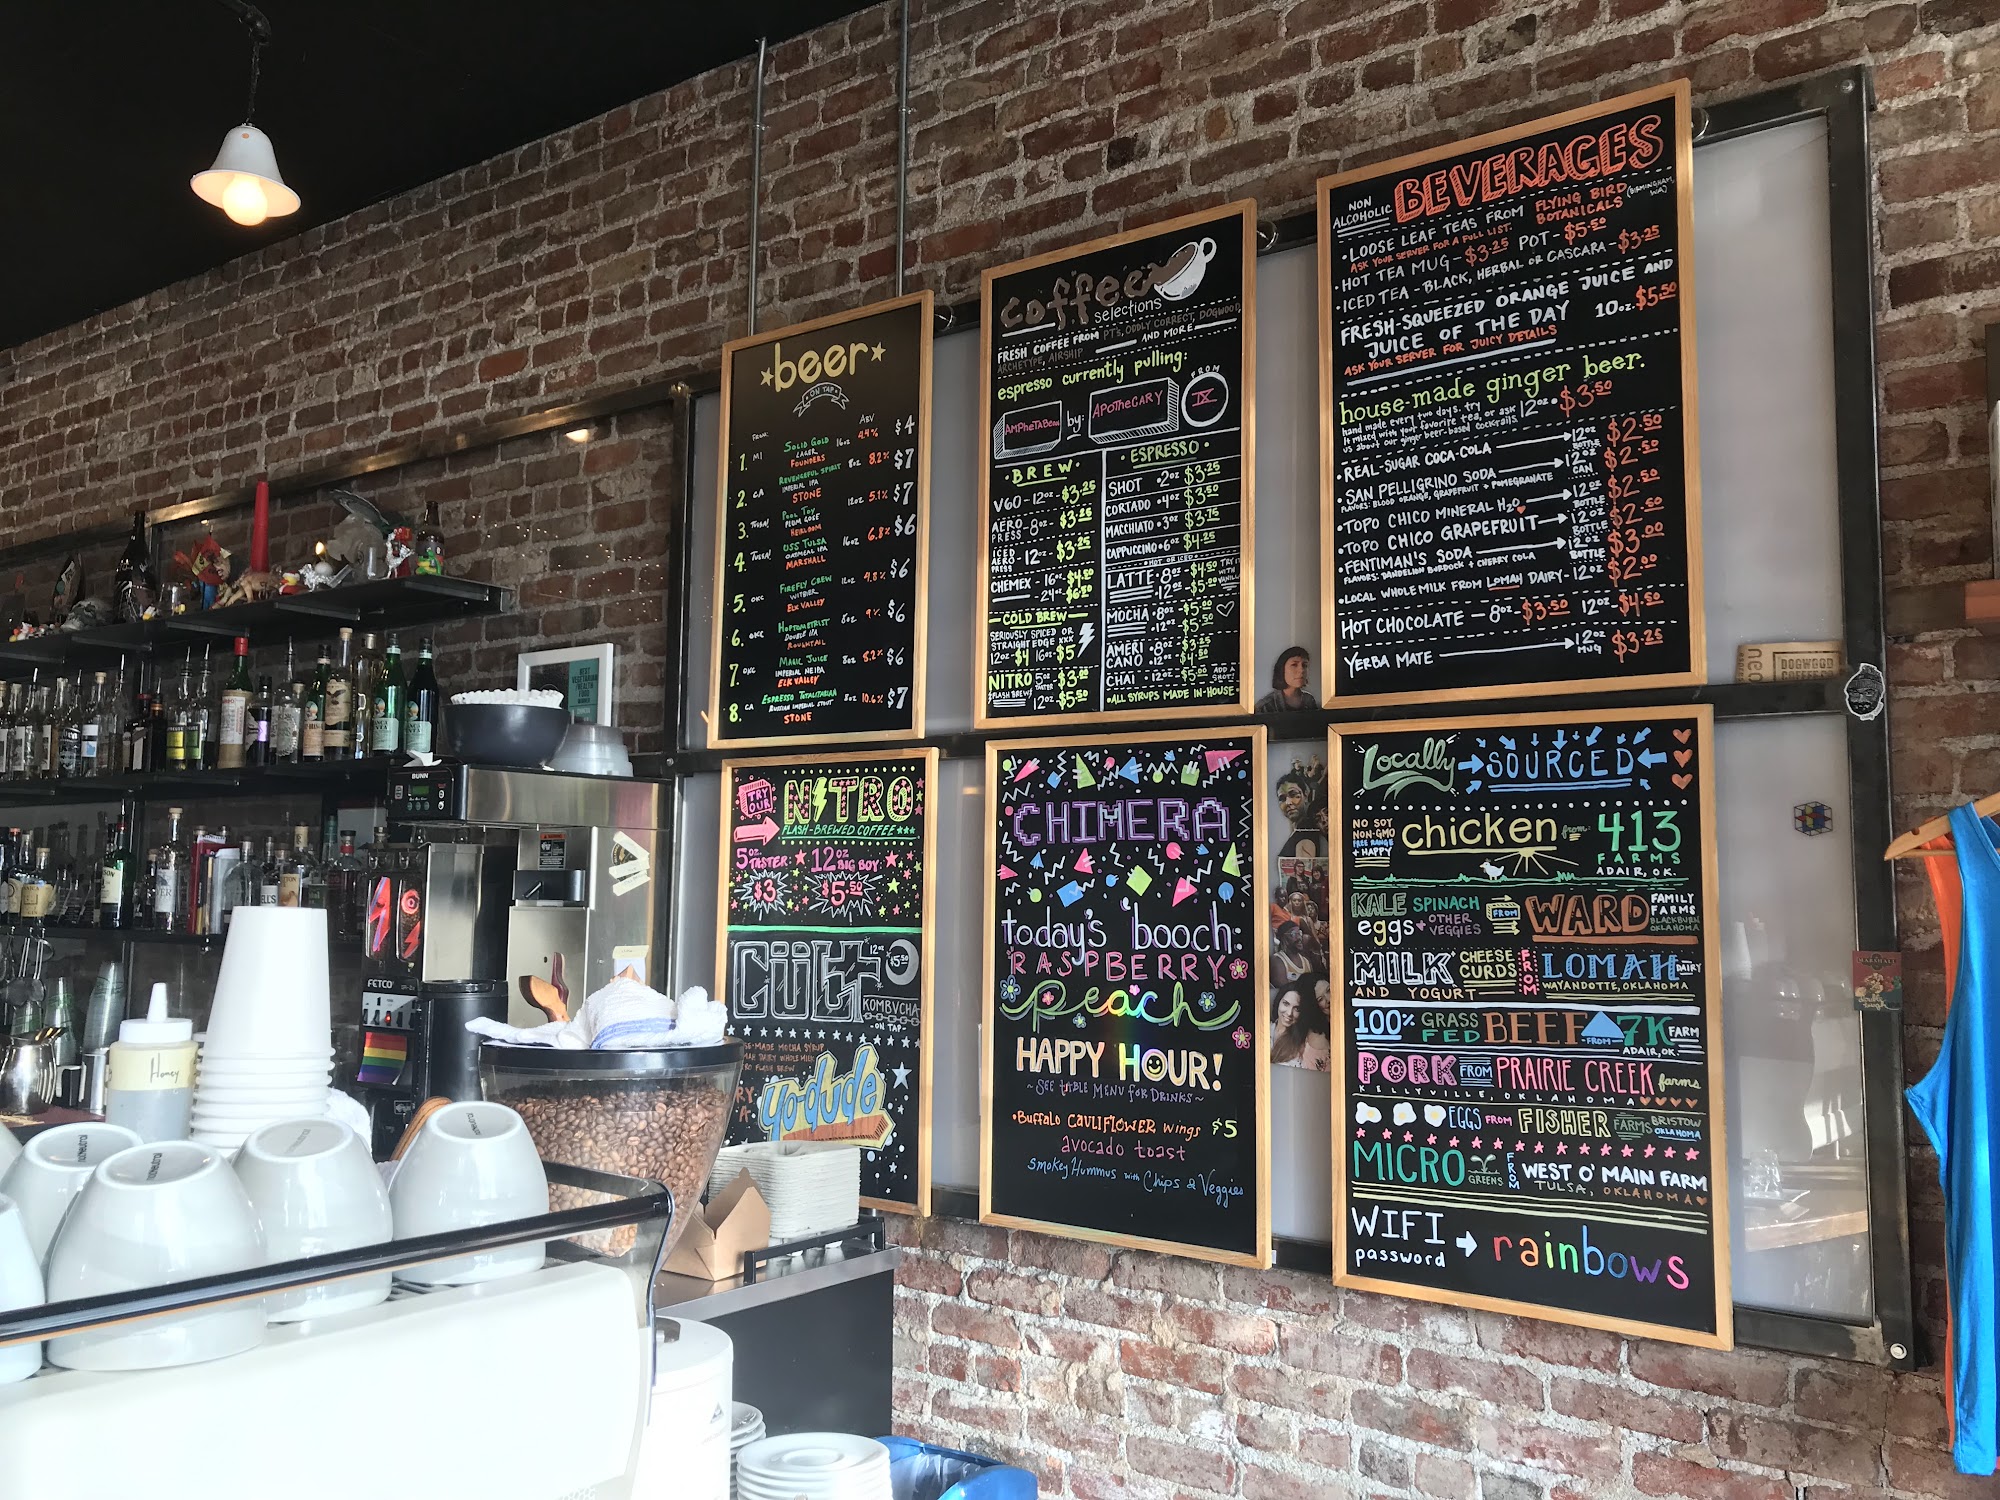 beer
ON TAP
FROM:
ABV
1. MI SOLID GOLD 16oz 4.4% $4
LAGER
FOUNDERS
2. CA REVENGEFUL SPIRIT 8oz 8.2% $7
IMPERIAL IPA
STONE
3. TULSA! POOL TOY 12oz 5.1% $7
PLUM GOSE
HEIRLOOM
4. TULSA! USS TULSA 16oz 6.8% $6
OATMEAL IPA
MARSHALL
5. OKC FIREFLY CREW 12oz 4.8% $6
WITBIER
ELK VALLEY
6. OKC HOPTOMETRIST 8oz 9% $6
DOUBLE IPA
ROUGHTAIL
7. OKC MAGIC JUICE 8oz 8.2% $6
IMPERIAL NE IPA
ELK VALLEY
8. CA ESPRESSO TOTALITARIAN 8oz 10.6% $7
RUSSIAN IMPERIAL STOUT
STONE
coffee
selections
FRESH COFFEE FROM PT's, ODDLY CORRECT, DOGWOOD,
ARCHETYPE, AIRSHIP AND MORE
espresso currently pulling:
AMPheTABean by: APOTHeCARY FROM IX
BREW
V60-12oz-$3.25
AERO PRESS-8oz-$3.25
ICED AERO PRESS-12oz-$3.25
CHEMEX-16oz-$4.50
-24oz-$6.50
COLD BREW
SERIOUSLY SPICED OR
STRAIGHT EDGE XXX
12oz $4 16oz $5
NITRO 5oz TASTER $3.00
FLASH BREW 12oz $5.50
ESPRESSO
SHOT 2oz $3.25
CORTADO 4oz $3.50
MACCHIATO 3oz $3.75
CAPPUCCINO 6oz $4.25
HOT OR ICED
LATTE 8oz $4.50 TRY IT WITH VANILLA
12oz $5.00
MOCHA 8oz $5.00
12oz $5.50
AMERI CANO 8oz $3.25
12oz $4.50
CHAI 12oz $5.00 ADD A SHOT!
ALL SYRUPS MADE IN-HOUSE
NON ALCOHOLIC BEVERAGES
LOOSE LEAF TEAS FROM FLYING BIRD BOTANICALS (BIRMINGHAM, WA)
ASK YOUR SERVER FOR A FULL LIST.
HOT TEA MUG - $3.25 POT - $5.50
ICED TEA - BLACK, HERBAL OR CASCARA - $3.25
FRESH-SQUEEZED ORANGE JUICE AND
JUICE OF THE DAY 10oz. $5.50
ASK YOUR SERVER FOR JUICY DETAILS
house-made ginger beer.
hand made every two days. try
it mixed with your favorite tea, or ask
us about our ginger beer-based cocktails. 12oz $3.50
REAL-SUGAR COCA-COLA 12oz BOTTLE $2.50
SAN PELLIGRINO SODA 12oz CAN $2.50
FLAVORS: BLOOD ORANGE, GRAPEFRUIT + POMEGRANATE
TOPO CHICO MINERAL H2O 12oz BOTTLE $2.50
TOPO CHICO GRAPEFRUIT 12oz BOTTLE $2.50
FENTIMAN'S SODA 12oz BOTTLE $3.00
FLAVORS: DANDELION BURDOCK + CHERRY COLA
LOCAL WHOLE MILK FROM LOMAH DAIRY-12oz $2.00
HOT CHOCOLATE - 8oz-$3.50 12oz-$4.50
YERBA MATE 12oz MUG $3.25
TRY OUR NITRO
FLASH-BREWED COFFEE
5oz TASTER: 12oz BIG BOY:
$3 $5.50
CÜLT 12oz $5.50
KOMBUCHA
ON TAP
yo-dude
CHIMERA
today's 'booch:
RASPBERRY
peach
HAPPY HOUR!
~SEE TABLE MENU FOR DRINKS~
Buffalo CAULIFLOWER wings $5
avocado toast
Smokey Hummus with Chips & Veggies
Locally SOURCED
NO SOY
NON-GMO
FREE RANGE
+ HAPPY
chicken from: 413
FARMS
ADAIR, OK.
KALE SPINACH
eggs + OTHER VEGGIES FROM WARD FAMILY FARMS
BLACKBURN OKLAHOMA
MILK CHEESE CURDS FROM LOMAH DAIRY
AND YOGURT WAYANDOTTE, OKLAHOMA
100% GRASS FED BEEF FROM 7K FARM
ADAIR, OK.
PORK FROM PRAIRIE CREEK farms
KELLYVILLE, OKLAHOMA
EGGS FROM FISHER FARMS BRISTOW OKLAHOMA
MICRO GREENS FROM WEST O' MAIN FARM
TULSA, OKLAHOMA
WIFI
password
rainbows
BUNN
FETCO
Honey
DOGWOOD
COFFEE
MARSHALL